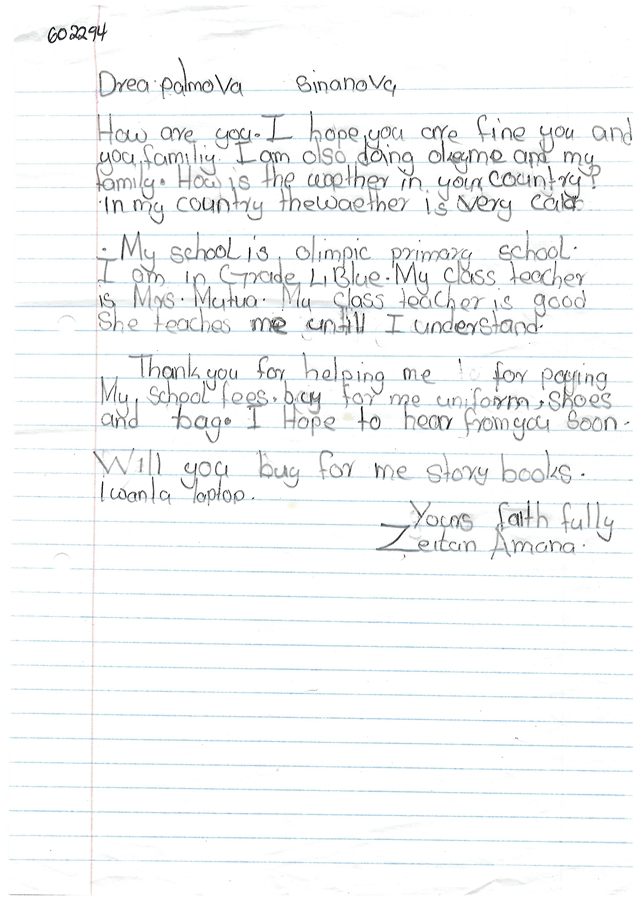 602294
Drea palmova sinanova
How are you. I hope, you are fine you and
you, familiy. I am also doing okeyme and my
family. How is the weather in your country?
In my country thewaether is very cold
. My school is olimpic primary school.
I am in Grade 4 Blue. My class teacher
is Mrs. Mutua. My class teacher is good
She teaches me untill I understand.
Thank you for helping me for paying
My school fees. buy for me uniform, shoes
and bag. I Hope to hear from you soon.
Will you buy for me story books.
I want a laptop.
Yours faith fully
Zeitan Amana.